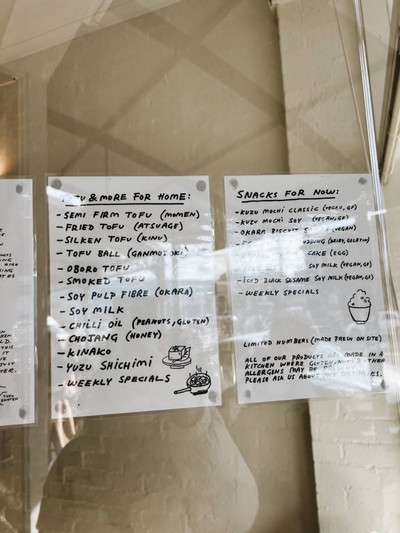 & MORE FOR HOME:
- SEMI FIRM TOFU (MOMEN)
- FRIED TOFU (ATSUAGE)
- SILKEN TOFU (KINU)
- TOFU BALL (GANMODOKI)
- OBORO TOFU
- SMOKED TOFU
- SOY PULP FIBRE (OKARA)
- SOY MILK
- CHILLI OIL (PEANUTS, GLUTEN)
- CHOJANG (HONEY)
- KINAKO
- YUZU SHICHIMI
- WEEKLY SPECIALS
SNACKS FOR NOW:
- KUZU MOCHI CLASSIC (VEGAN, GF)
- KUZU MOCHI SOY (VEGAN, GF)
- OKARA BISCUIT (VEGAN)
PUDDING (DAIRY, GELATIN)
CAKE (EGG)
SOY MILK (VEGAN, GF)
- ICED BLACK SESAME SOY MILK (VEGAN, GF)
- WEEKLY SPECIALS
LIMITED NUMBERS (MADE FRESH ON SITE)
ALL OF OUR PRODUCTS ARE MADE IN A
KITCHEN WHERE GLUTEN, OTHER
ALLERGENS MAY BE
PLEASE ASK US ABOUT